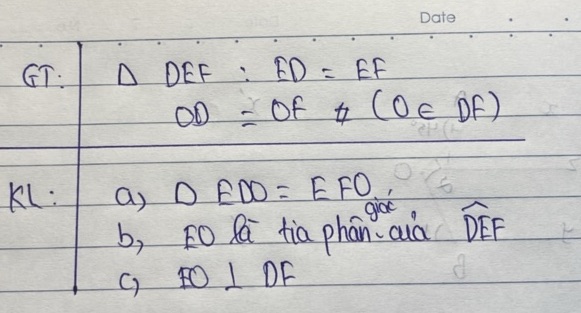 Date
GT: Δ DEF : ED = EF
OD = OF (O ∈ DF)
KL: a, Δ EDO = EFO
b, EO là tia phân giác của DEF
c, EO ⊥ DF